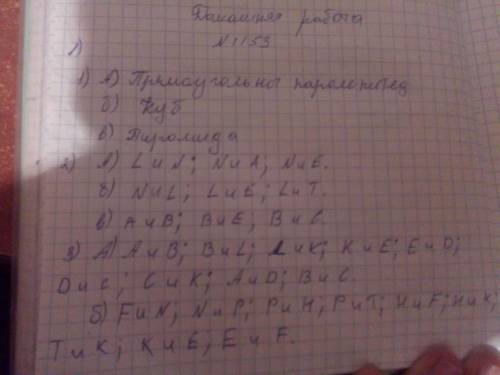 Домашняя работа
№1153
1)
1) А) Прямоугольный паролепипед
б) Куб
в) Пиромида
2) А) L и N; N и A; N и E.
б) N и L; L и E; L и T.
в) A и B; B и E; B и C.
3) А) A и B; B и L; L и K; K и E; E и D;
D и C; C и K; A и D; B и C.
б) F и N; N и P; P и H; P и T; H и F; H и K;
T и K; K и E; E и F.